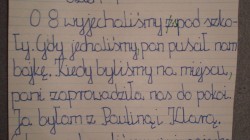 O 8 wyjechaliśmy spod szko-
ły. Gdy jechaliśmy, pan puszał nam
bajkę. Kiedy byliśmy na miejscu,
pani zaprowadziła nas do pokoi.
Ja byłam z Pauliną i Klarą.